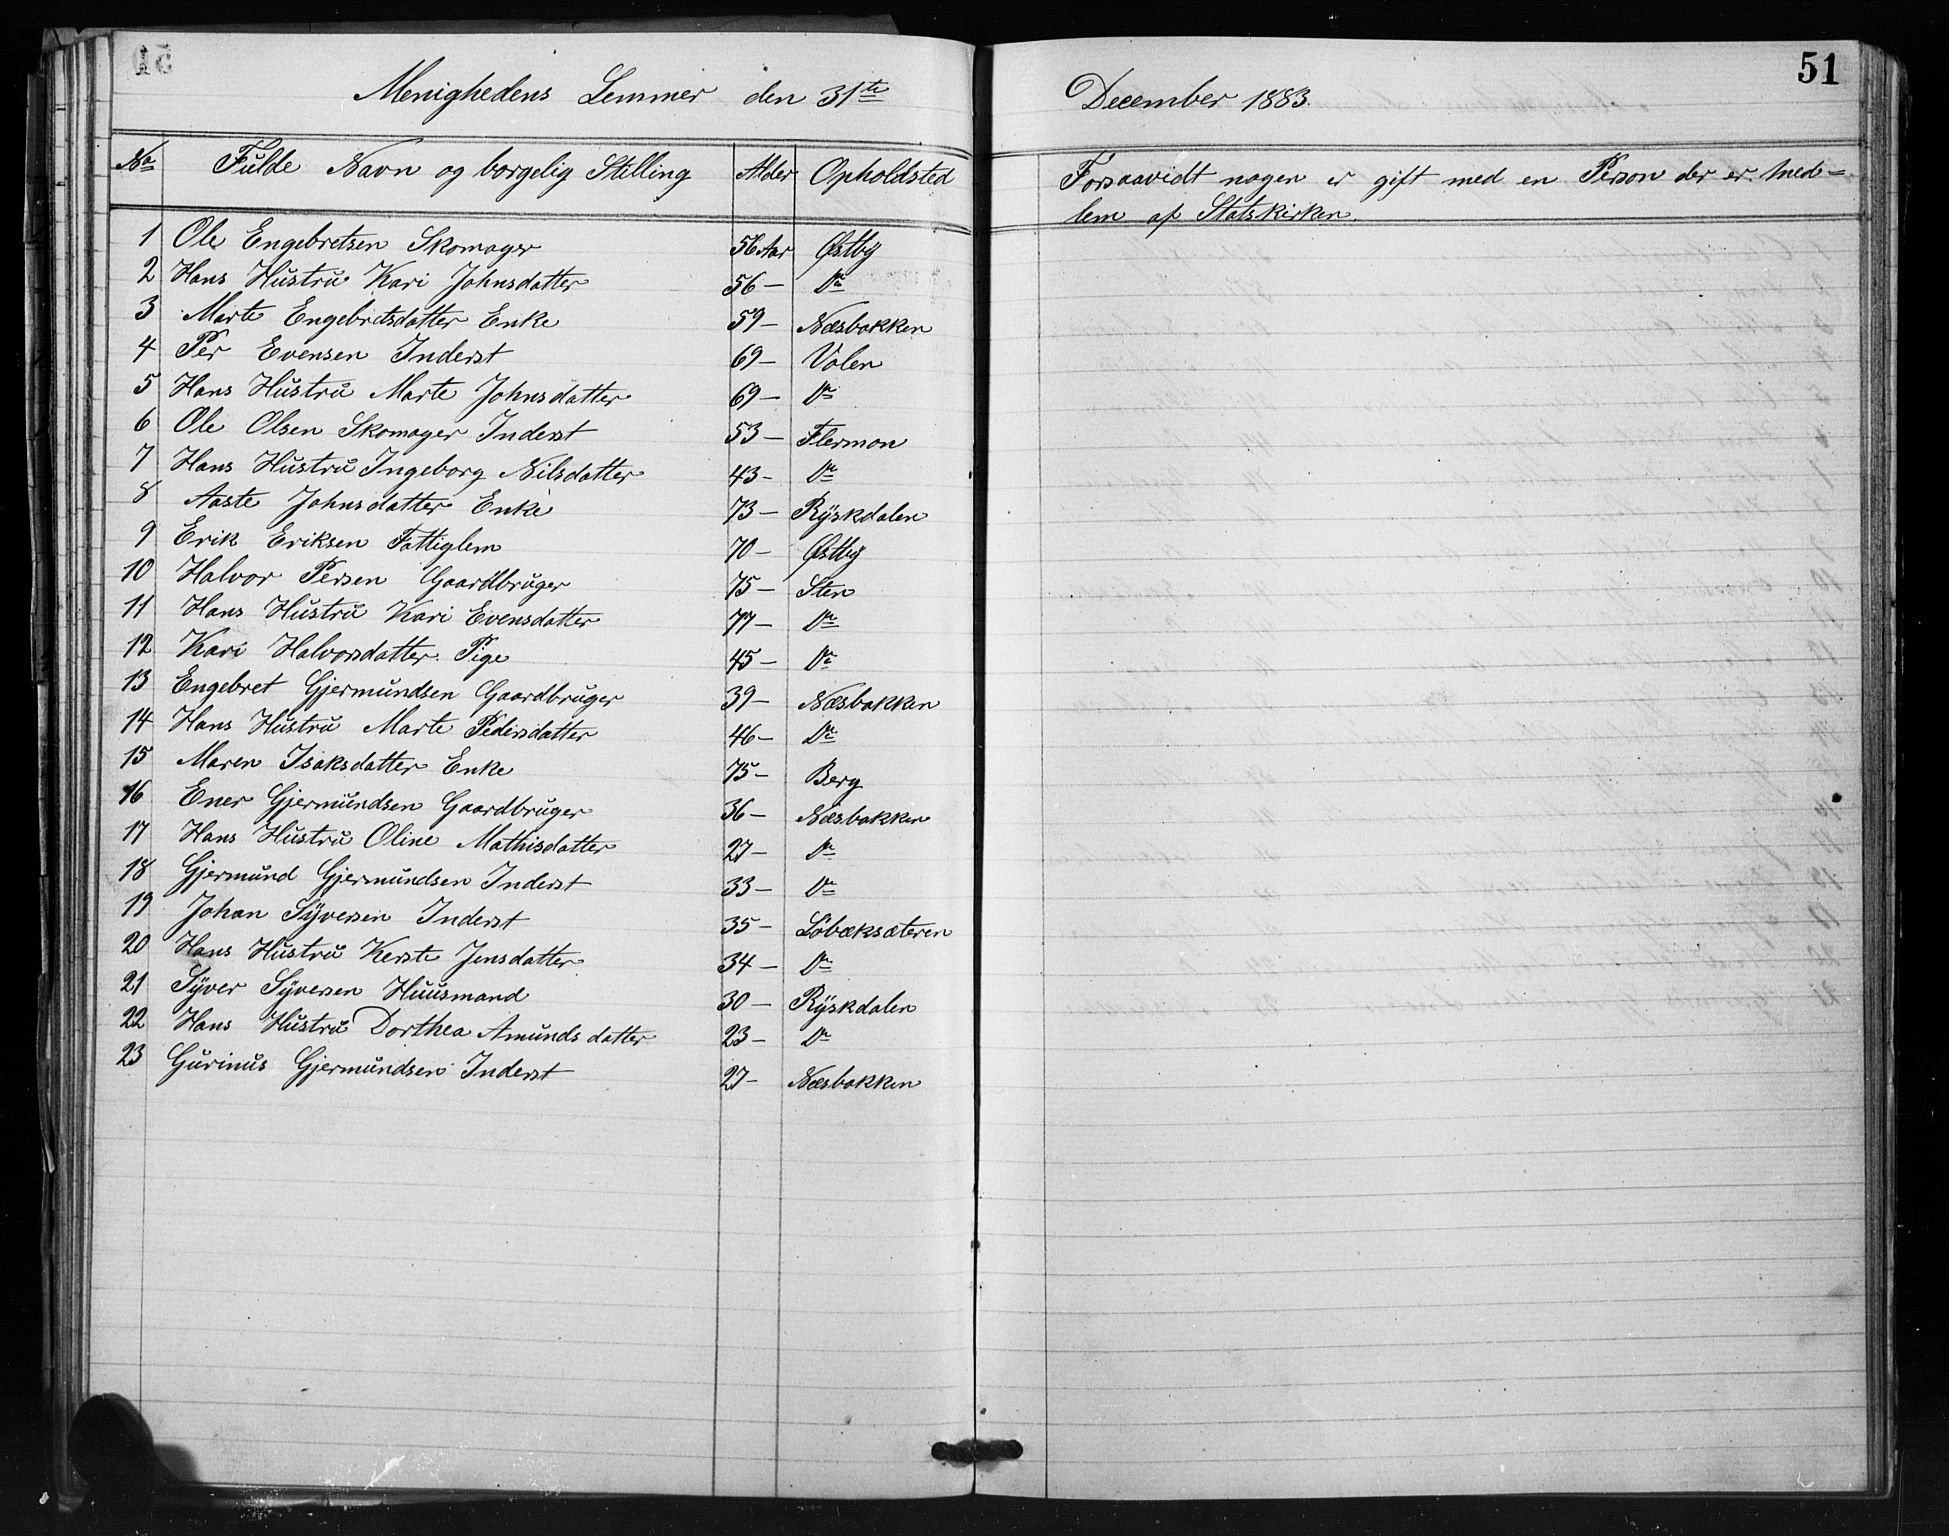 51
Menighedens Lemmer den 31te December 1883.
No Fulde Navn og borgelig Stilling Alder Opholdsted Forsaavidt nogen er gift med en Person der er Med=
lem af Statskirken.
1 Ole Engebretsen Skomager 56 Aar Østby
2 Hans Hustru Kari Johnsdatter 56 — Do
3 Marte Engebretsdatter Enke 59 — Næsbakken
4 Per Evensen Inderst 69 — Volen
5 Hans Hustru Marte Johnsdatter 69 — Do
6 Ole Olsen Skomager Inderst 53 — Flermon
7 Hans Hustru Ingeborg Nilsdatter 43 - Do
8 Aaste Johnsdatter Enke 73 — Ryskdalen
9 Erik Eriksen Fattiglem 70 - Østby
10 Halvor Persen Gaardbruger 75 — Sten
11 Hans Hustru Kari Evensdatter 77 — Do
12 Kari Halvorsdatter Pige 45 — Do
13 Engebret Gjermundsen Gaardbruger 39 — Næsbakken
14 Hans Hustru Marte Pedersdatter 46 — Do
15 Maren Isaksdatter Enke 75 — Berg
16 Ener Gjermundsen Gaardbruger 36 — Næsbakken
17 Hans Hustru Oline Mathisdatter 27 — Do
18 Gjermund Gjermundsen Inderst 33 — Do
19 Johan Syversen Inderst 35 — Løbæksæteren
20 Hans Hustru Kerste Jensdatter 34 — Do
21 Syver Syversen Huusmand 30 — Ryskdalen
22 Hans Hustru Dorthea Amundsdatter 23 — Do
23 Gurinus Gjermundsen Inderst 27 - Næsbakken